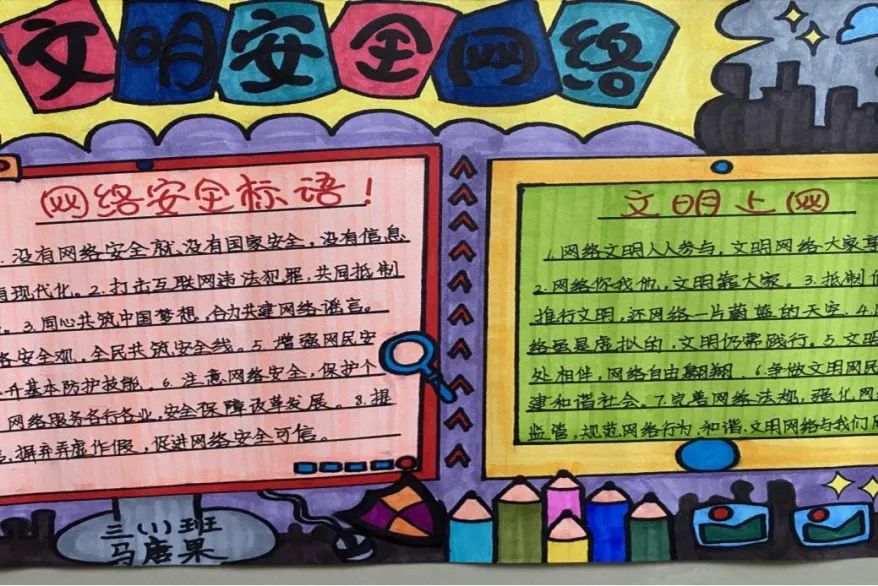 文明安全网络
网络安全标语！
.没有网络安全就没有国家安全，没有信息
现代化。2.打击互联网违法犯罪，共同抵制
。3.同心共筑中国梦想，合力共建网络谣言。
安全观，全民共筑安全线。5.增强网民安
升基本防护技能。6.注意网络安全，保护个
网络服务各行各业，安全保障改革发展。8.提
，摒弃弄虚作假，促进网络安全可信。
文明上网
1.网络文明人人参与，文明网络大家享
2.网络你我他，文明靠大家。3.抵制
推行文明，还网络一片蔚蓝的天空。4.
络虽是虚拟的，文明仍需践行。5.文明
处相伴，网络自由翱翔。6.争做文明网民
建和谐社会。7.完善网络法规，强化网
监管，规范网络行为，和谐，文明网络与我们
三(1)班
马唐果